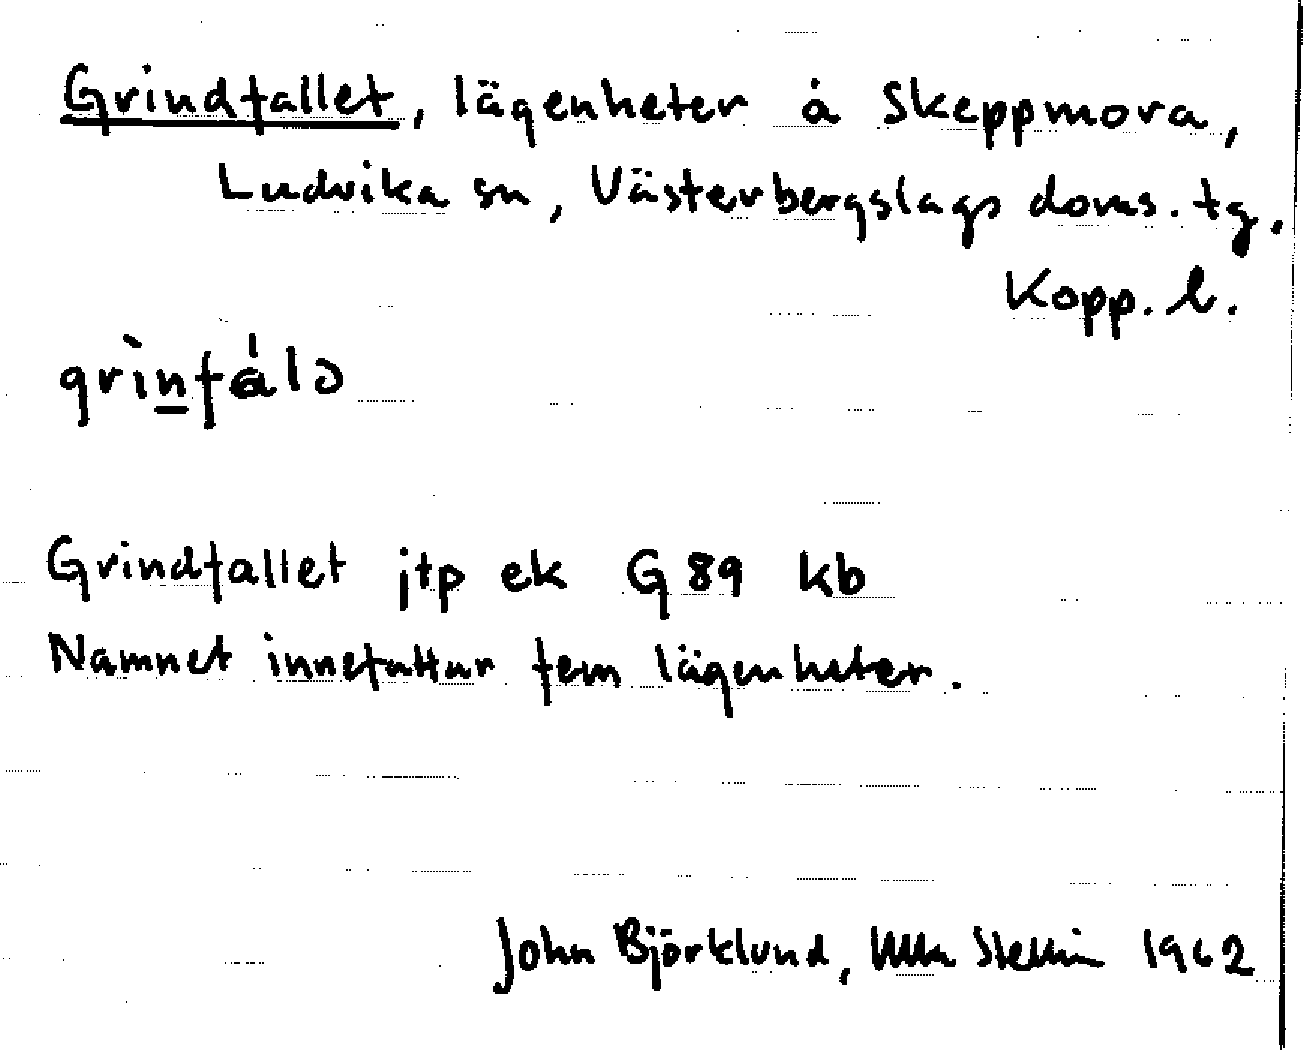 Grindfallet, lägenheter å Skeppmora,
Ludvika sn, Västerbergslags doms. tg,
Kopp. l.
grìn̲fál
Grindfallet jtp ek G 89 kb
Namnet innefattar fem lägenheter.
John Björklund, Ulla 1962